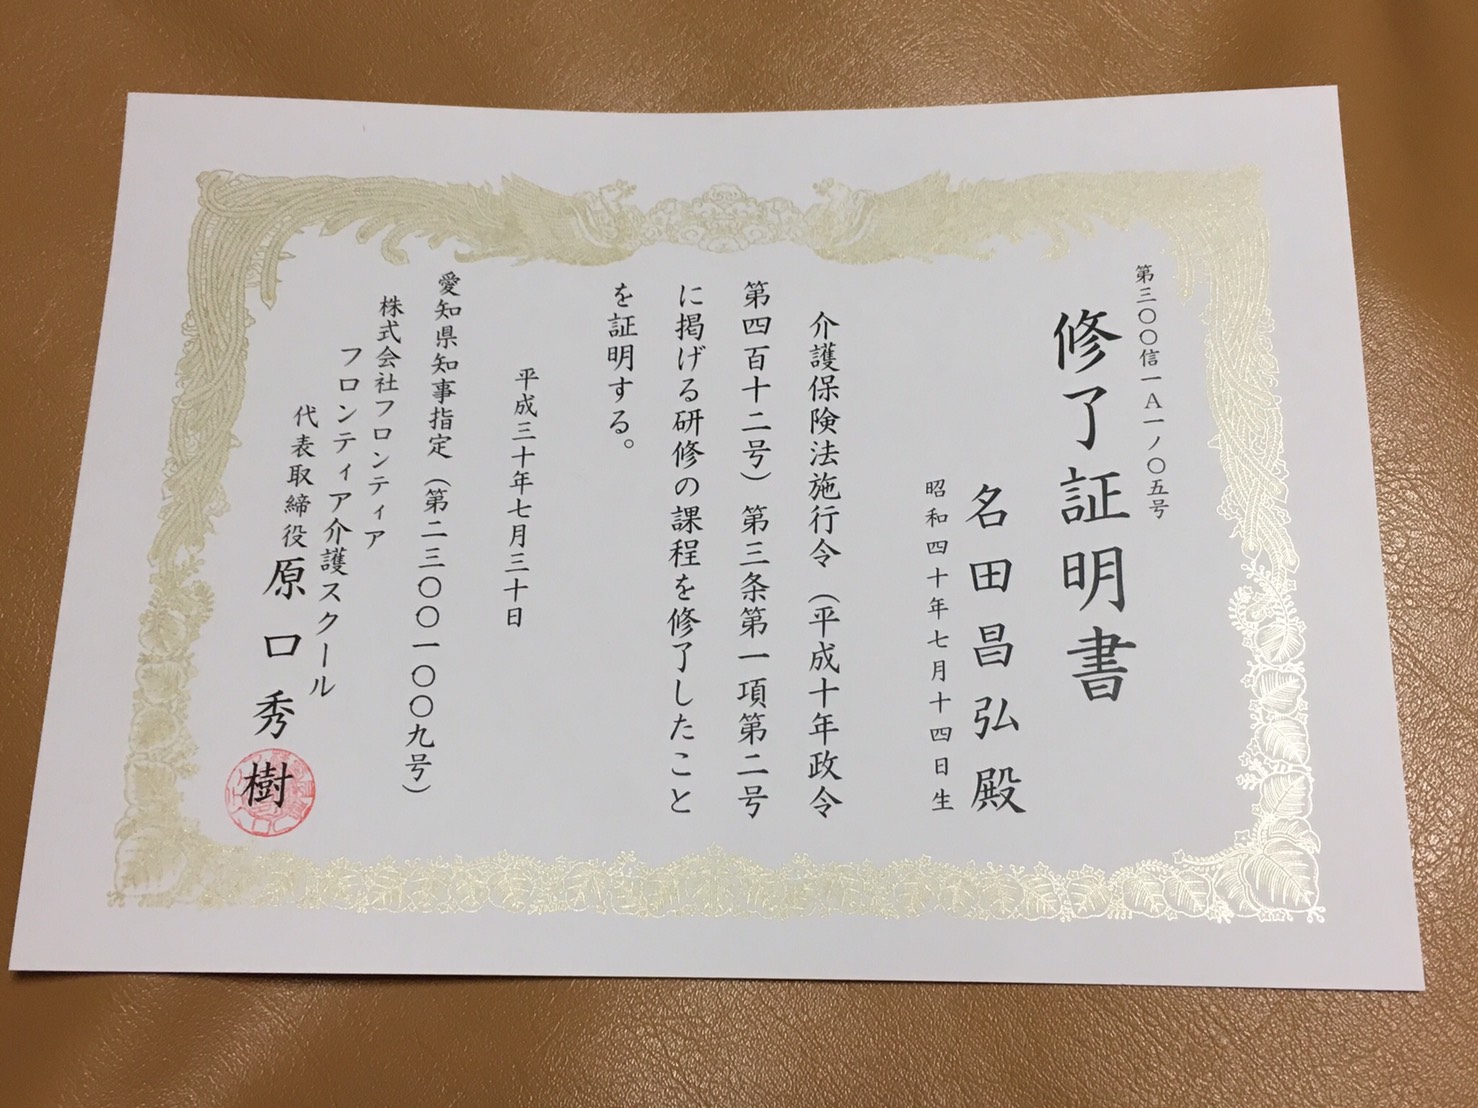 第三〇〇信一A一ノ〇五号
修了証明書
名田昌弘殿
昭和四十年七月十四日生
介護保険法施行令（平成十年政令
第四百十二号）第三条第一項第二号
に掲げる研修の課程を修了したこと
を証明する。
平成三十年七月三十日
愛知県知事指定（第二三〇〇一〇〇九号）
株式会社フロンティア
フロンティア介護スクール
代表取締役原口秀樹